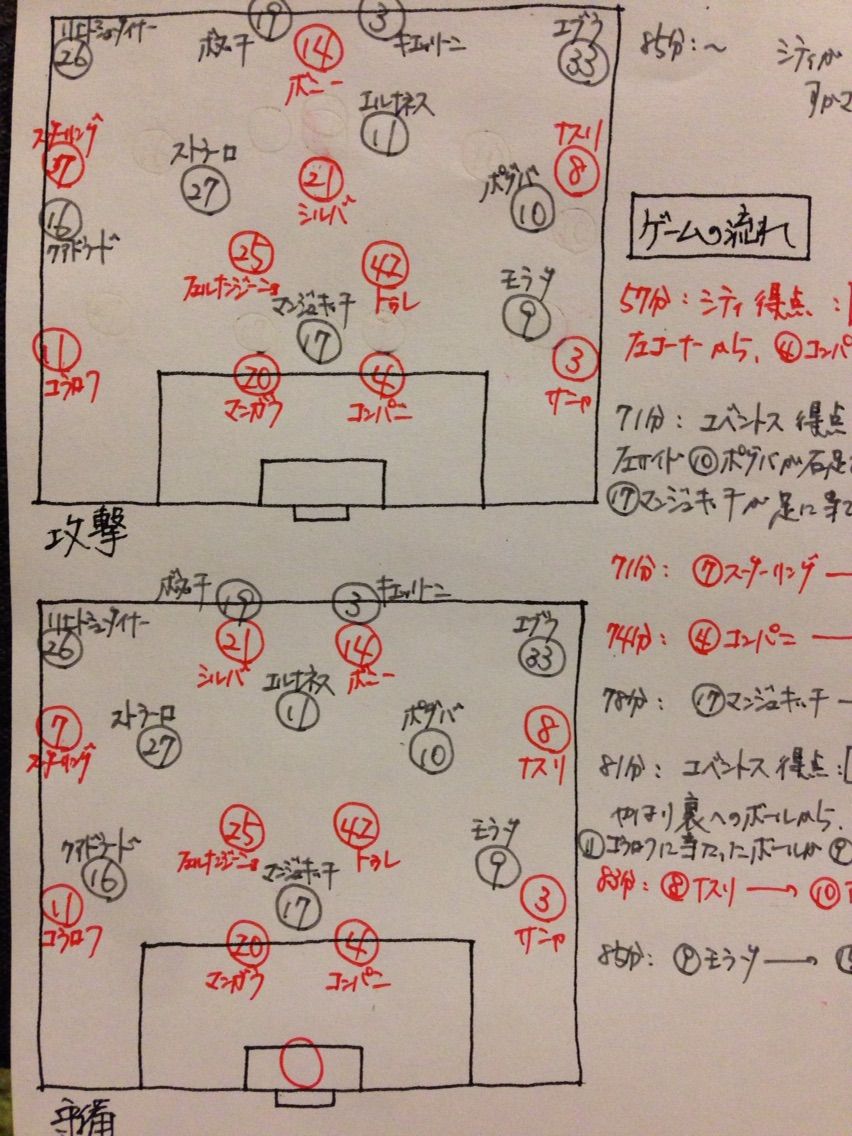 19
3
26
ボヌッチ
14
キエッリーニ
エブラ
33
ボニー
エルナネス
11
スターリング
37
ストラーロ
27
21
シルバ
ナスリ
8
ポグバ
10
16
クアドラード
25
フェルナンジーニョ
42
トゥレ
マンジュキッチ
17
モラタ
9
11
コラロフ
20
マンガラ
4
コンパニ
3
サニャ
攻撃
ボヌッチ
19
3
キエッリーニ
26
21
シルバ
14
ボニー
エブラ
33
エルナネス
11
7
スターリング
ストラーロ
27
ポグバ
10
8
ナスリ
25
フェルナンジーニョ
42
トゥレ
クアドラード
16
マンジュキッチ
17
モラタ
9
11
コラロフ
20
マンガラ
4
コンパニ
3
サニャ
守備
85分：〜 シティが
ゲームの流れ
57分：シティ得点：
左コーナーから、④コンパ
71分：ユベントス得点
左サイド⑩ポグバが右足
⑰マンジュキッチが足に当て
71分：⑦スターリング→
74分：④コンパニ→
78分：⑰マンジュキッチ
81分：ユベントス得点：
やはり裏へのボールから、
⑪コラロフに当たったボールが⑨
83分：⑧ナスリ→⑩
85分：⑨モラタ→